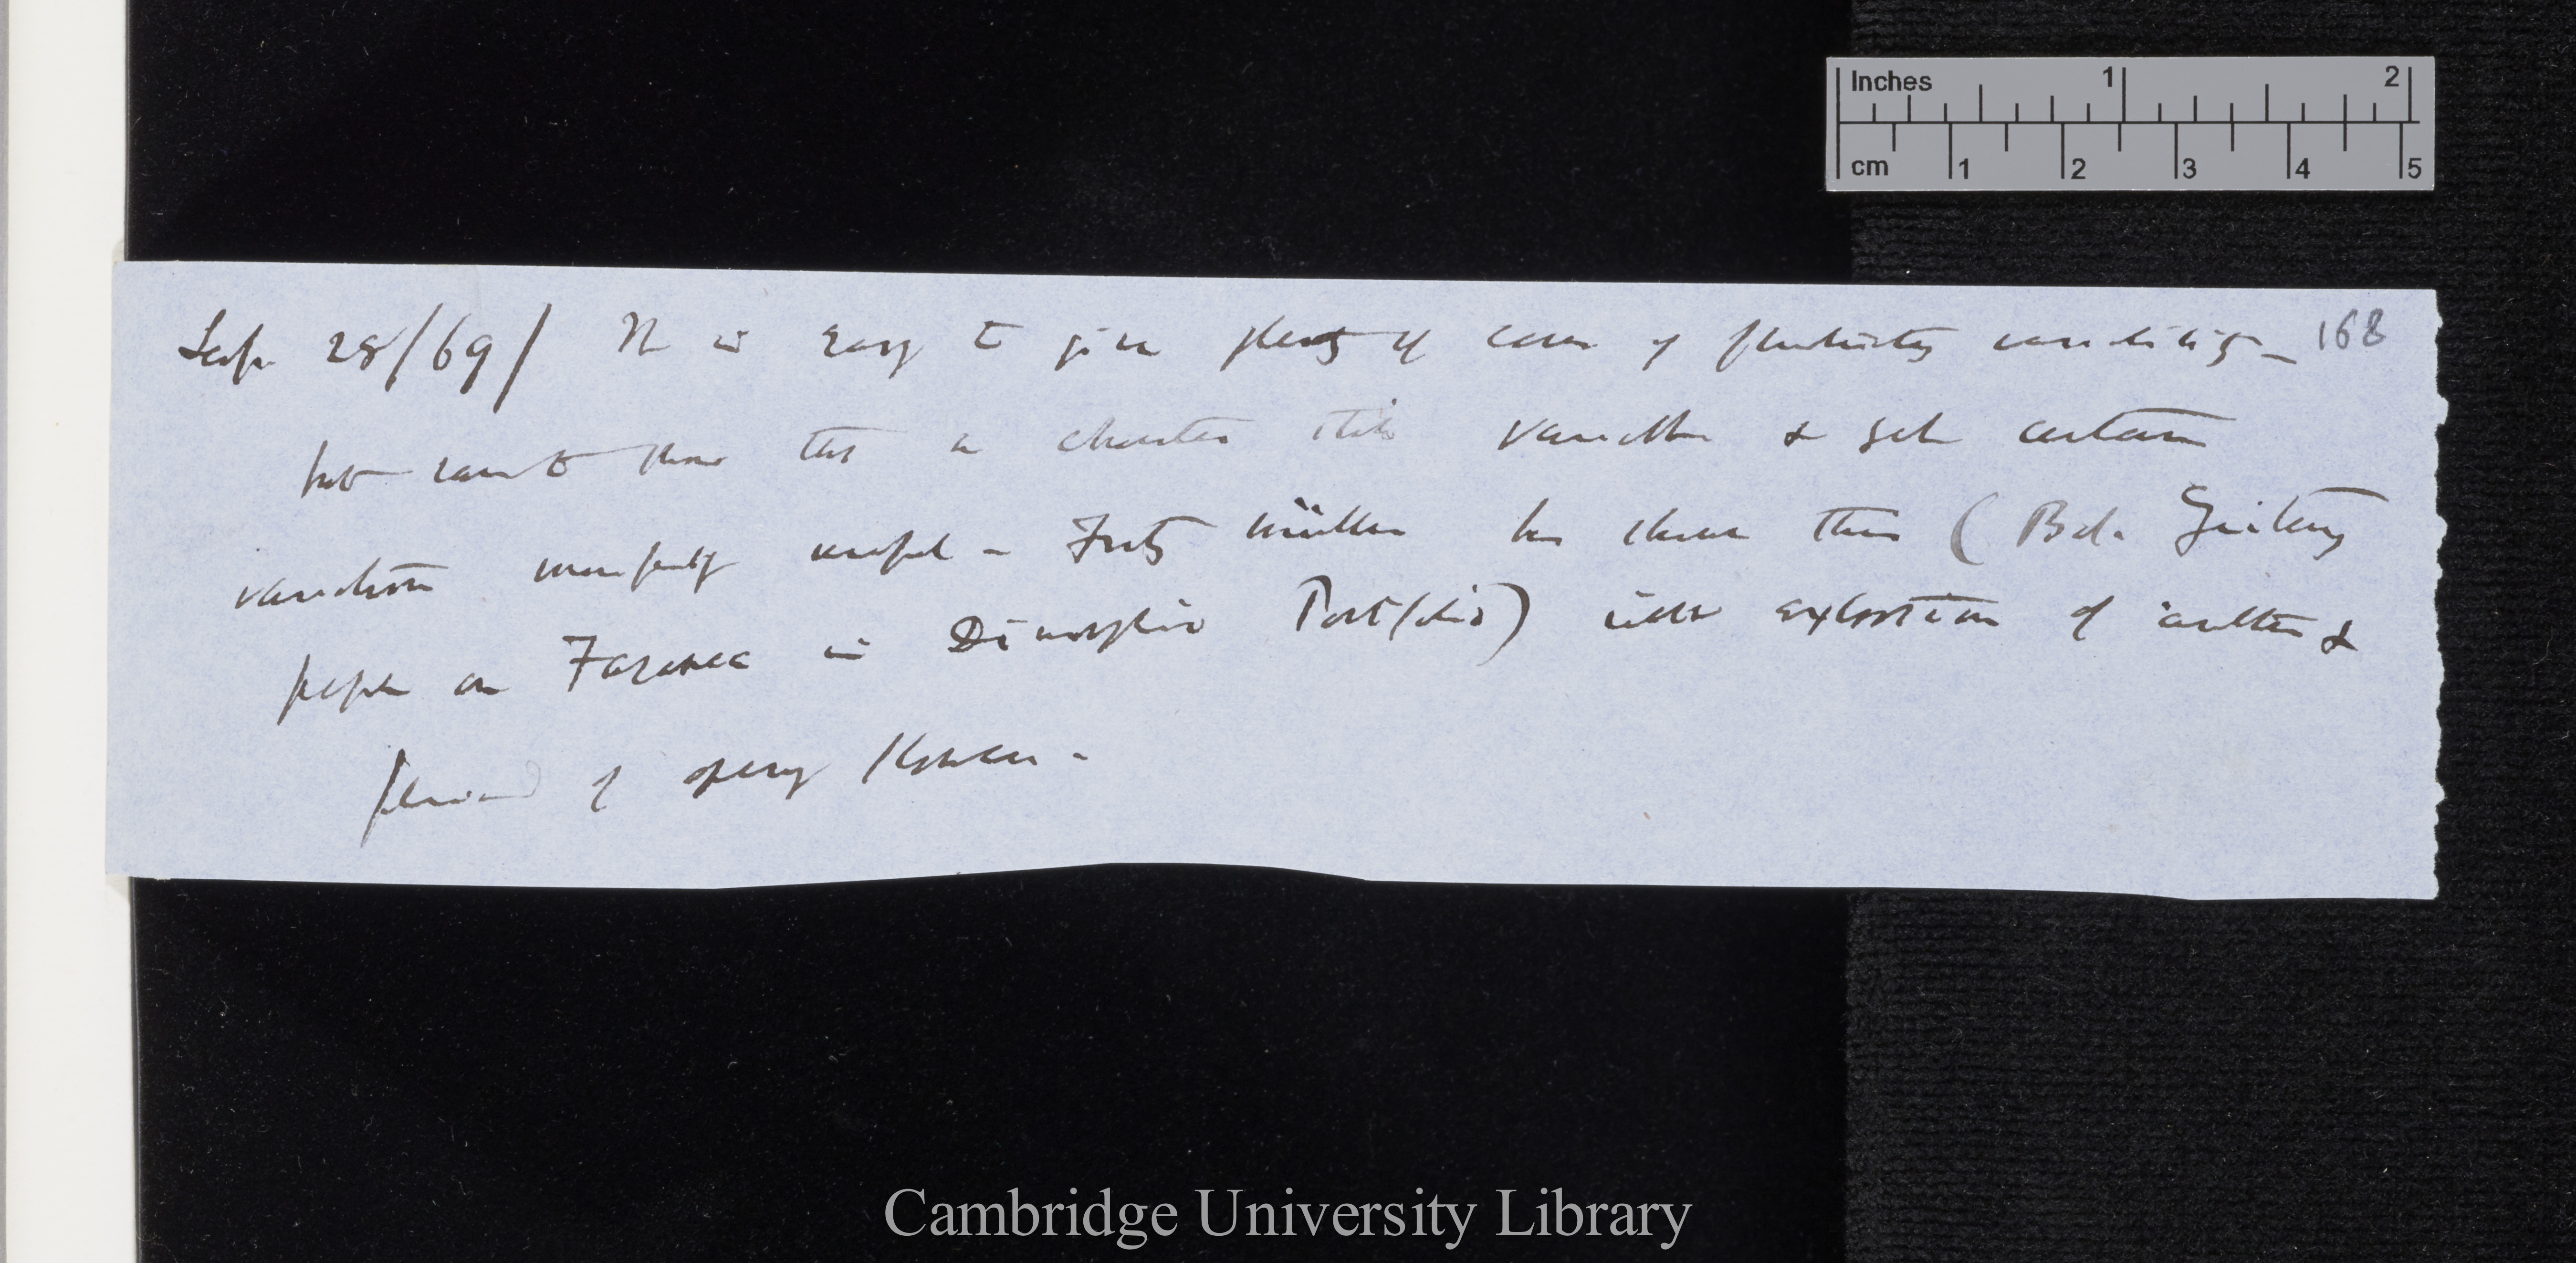 Inches 1 2
cm 1 2 3 4 5
Sept 28/69/ It is easy to give plenty of cases of fluctuating variability — 168
but rare to show that a character is variable & yet certain
variation manifestly useful — Fritz Müller has shown this (Bot. Zeitung
paper on Faramea in Dimorphic Portfolio) with explosion of anthers &
period of opening flower —
Cambridge University Library